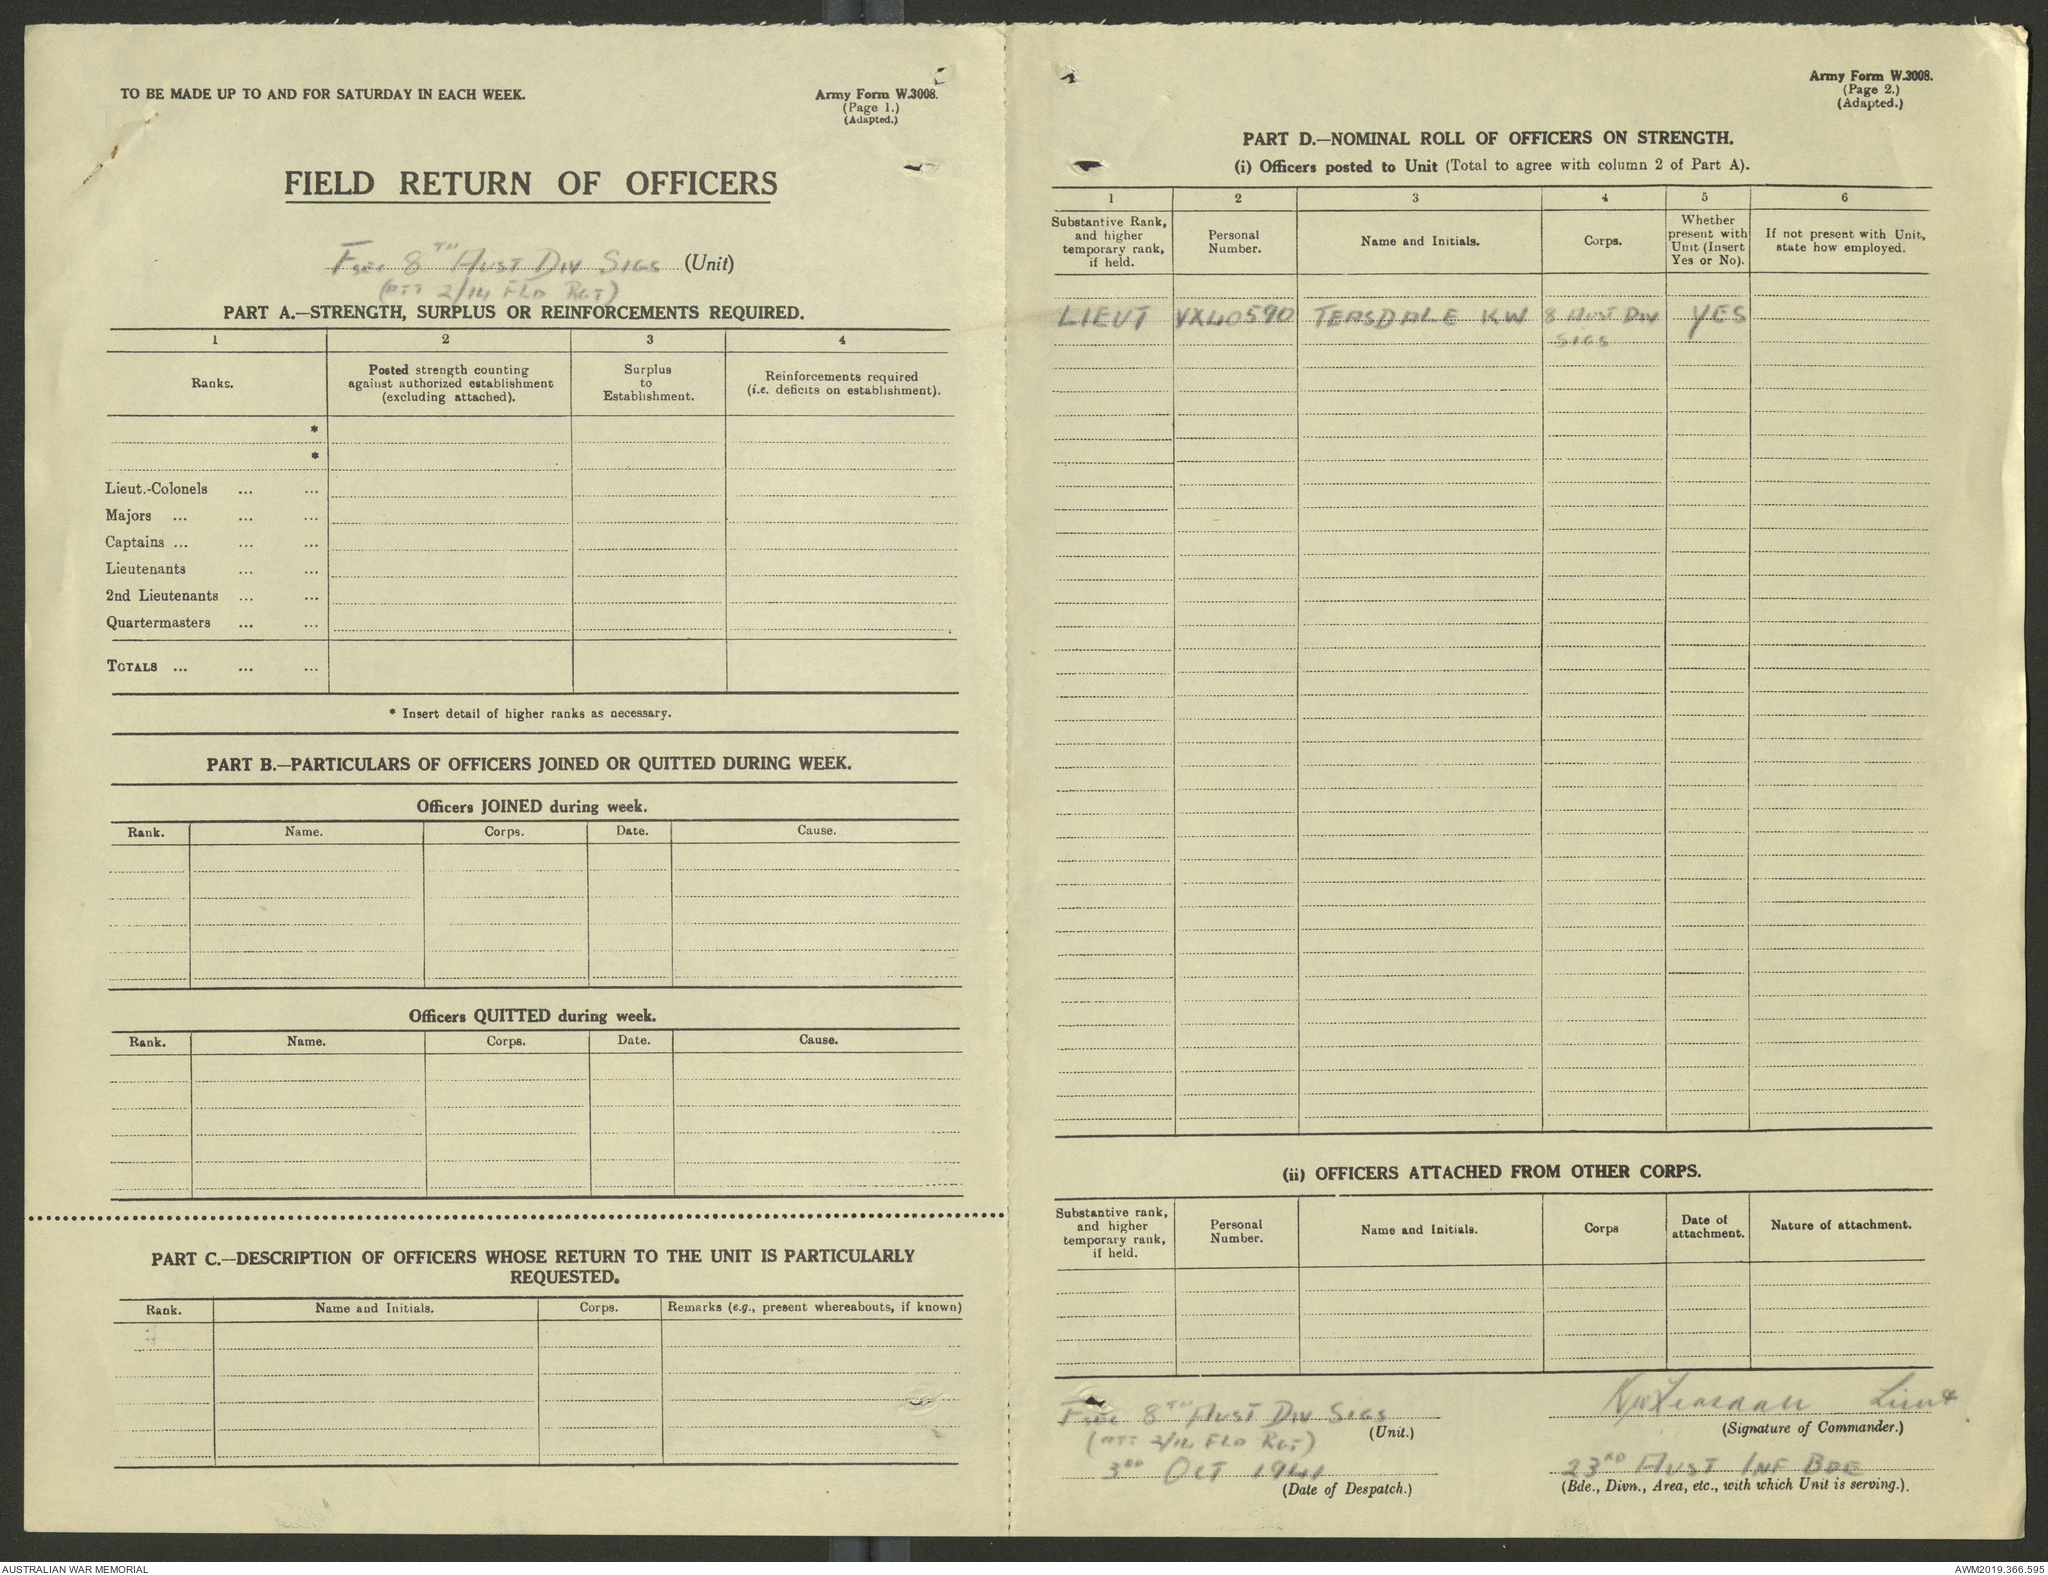 TO BE MADE UP TO AND FOR SATURDAY IN EACH WEEK.
Army Form W.3008.
(Page 1.)
(Adapted.)
FIELD RETURN OF OFFICERS
F SEC 8TH AUST DIV SIGS (Unit)
(ATT 2/14 FLD RGT)
PART A.—STRENGTH, SURPLUS OR REINFORCEMENTS REQUIRED.
1 2 3 4
Ranks.
Posted strength counting
against authorized establishment
(excluding attached).
Surplus
to
Establishment.
Reinforcements required
(i.e. deficits on establishment).
*
*
Lieut.-Colonels ... ...
Majors ... ... ...
Captains ... ... ...
Lieutenants ... ...
2nd Lieutenants ... ...
Quartermasters ... ...
TOTALS ... ... ...
* Insert detail of higher ranks as necessary.
PART B.—PARTICULARS OF OFFICERS JOINED OR QUITTED DURING WEEK.
Officers JOINED during week.
Rank. Name. Corps. Date. Cause.
Officers QUITTED during week.
Rank. Name. Corps. Date. Cause.
PART C.—DESCRIPTION OF OFFICERS WHOSE RETURN TO THE UNIT IS PARTICULARLY
REQUESTED.
Rank. Name and Initials. Corps. Remarks (e.g., present whereabouts, if known)
Army Form W.3008.
(Page 2.)
(Adapted.)
PART D.—NOMINAL ROLL OF OFFICERS ON STRENGTH.
(i) Officers posted to Unit (Total to agree with column 2 of Part A).
1 2 3 4 5 6
Substantive Rank,
and higher
temporary rank,
if held.
Personal
Number.
Name and Initials.
Corps.
Whether
present with
Unit (Insert
Yes or No).
If not present with Unit,
state how employed.
LIEUT VX40590 TEASDALE KW 8 AUST DIV YES
SIGS
(ii) OFFICERS ATTACHED FROM OTHER CORPS.
Substantive rank,
and higher
temporary rank,
if held.
Personal
Number.
Name and Initials.
Corps
Date of
attachment.
Nature of attachment.
F SEC 8TH AUST DIV SIGS
(Unit.)
(ATT 2/14 FLD RGT)
3RD OCT 1941
(Date of Despatch.)
KW Teasdale Lieut
(Signature of Commander.)
23RD AUST INF BDE
(Bde., Divn., Area, etc., with which Unit is serving.).
AUSTRALIAN WAR MEMORIAL
AWM2019.366.595